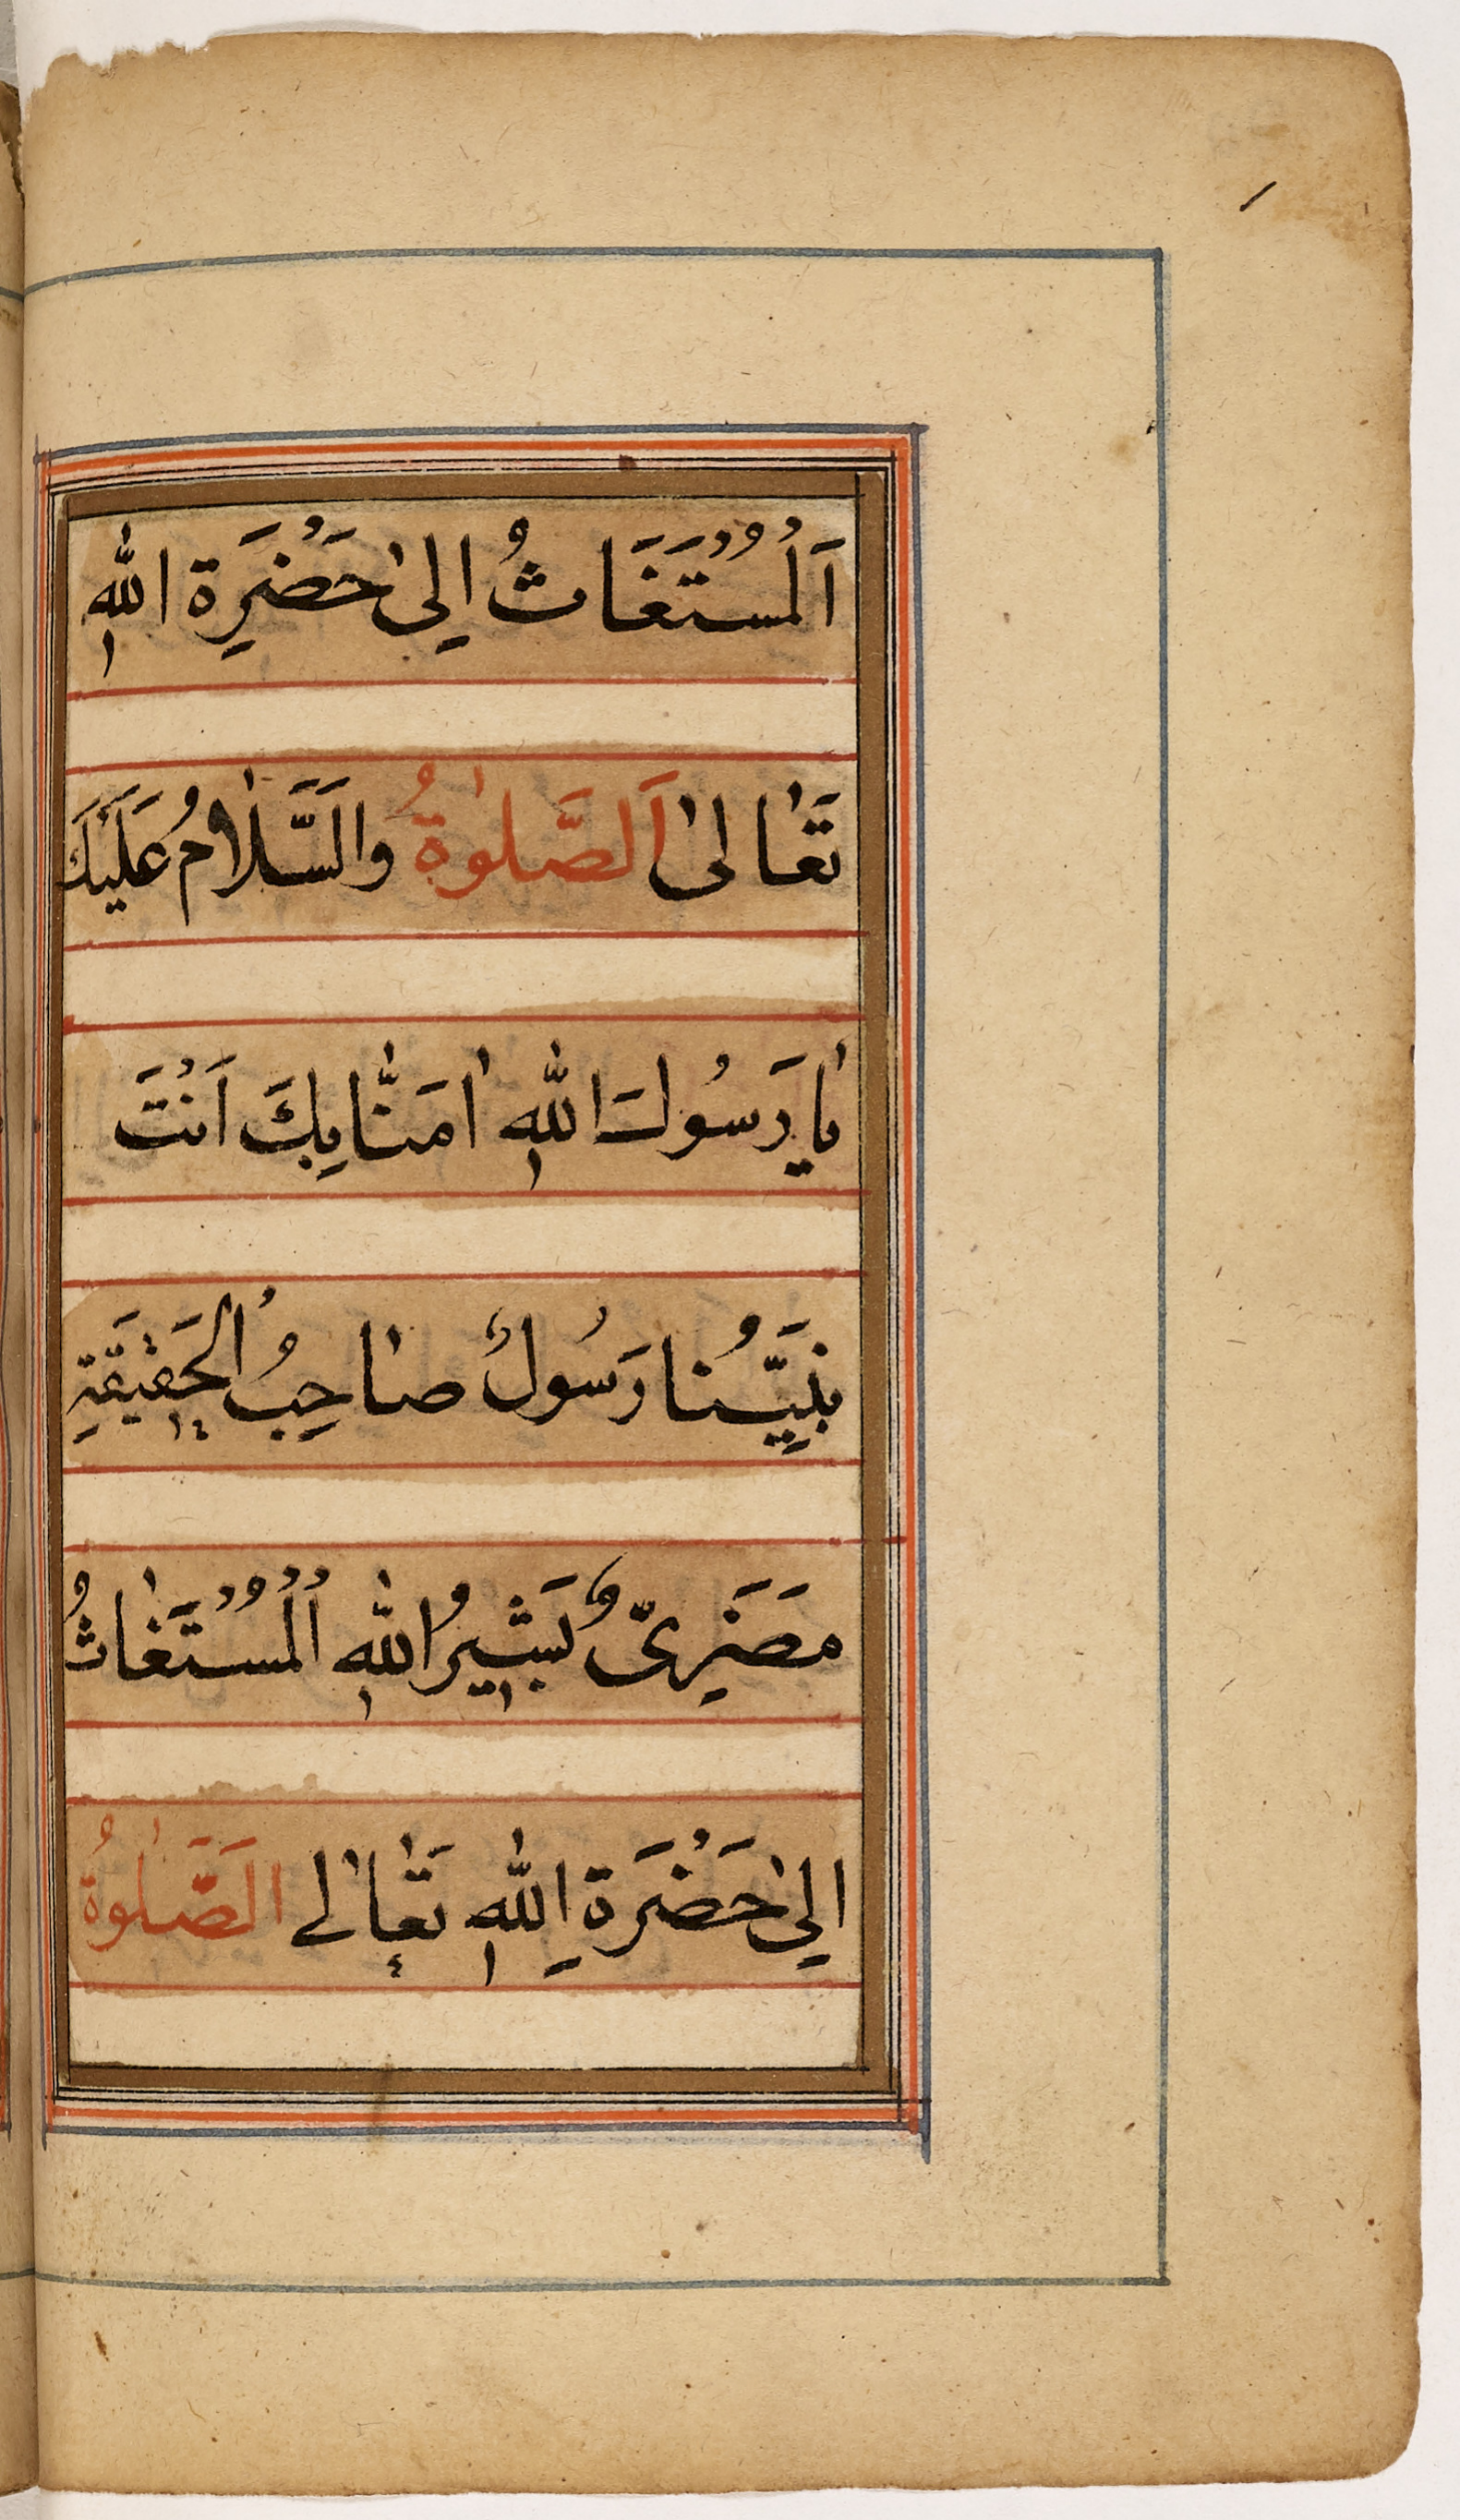 اَلْمُسْتَغَاثُ اِلىٰ حَضْرَِة اللهِ
تَعٰالىٰ اَلصَّلوٰةُ والسَّلٰامُ عَلَيْكَ
يٰا رَسُولَ اللهِ اٰمَنّٰا بِكَ اَنْتَ
نَبِيُّنا رَسُولٌ صٰاحِبُ الْحَقِيقَةِ
مَضَرِىٌّ بَشِيرُ اللهِ الْمُسْتَغٰاثُ
اِلىٰ حَضْرَةِ اللهِ تَعٰالے الصَّلٰوةُ